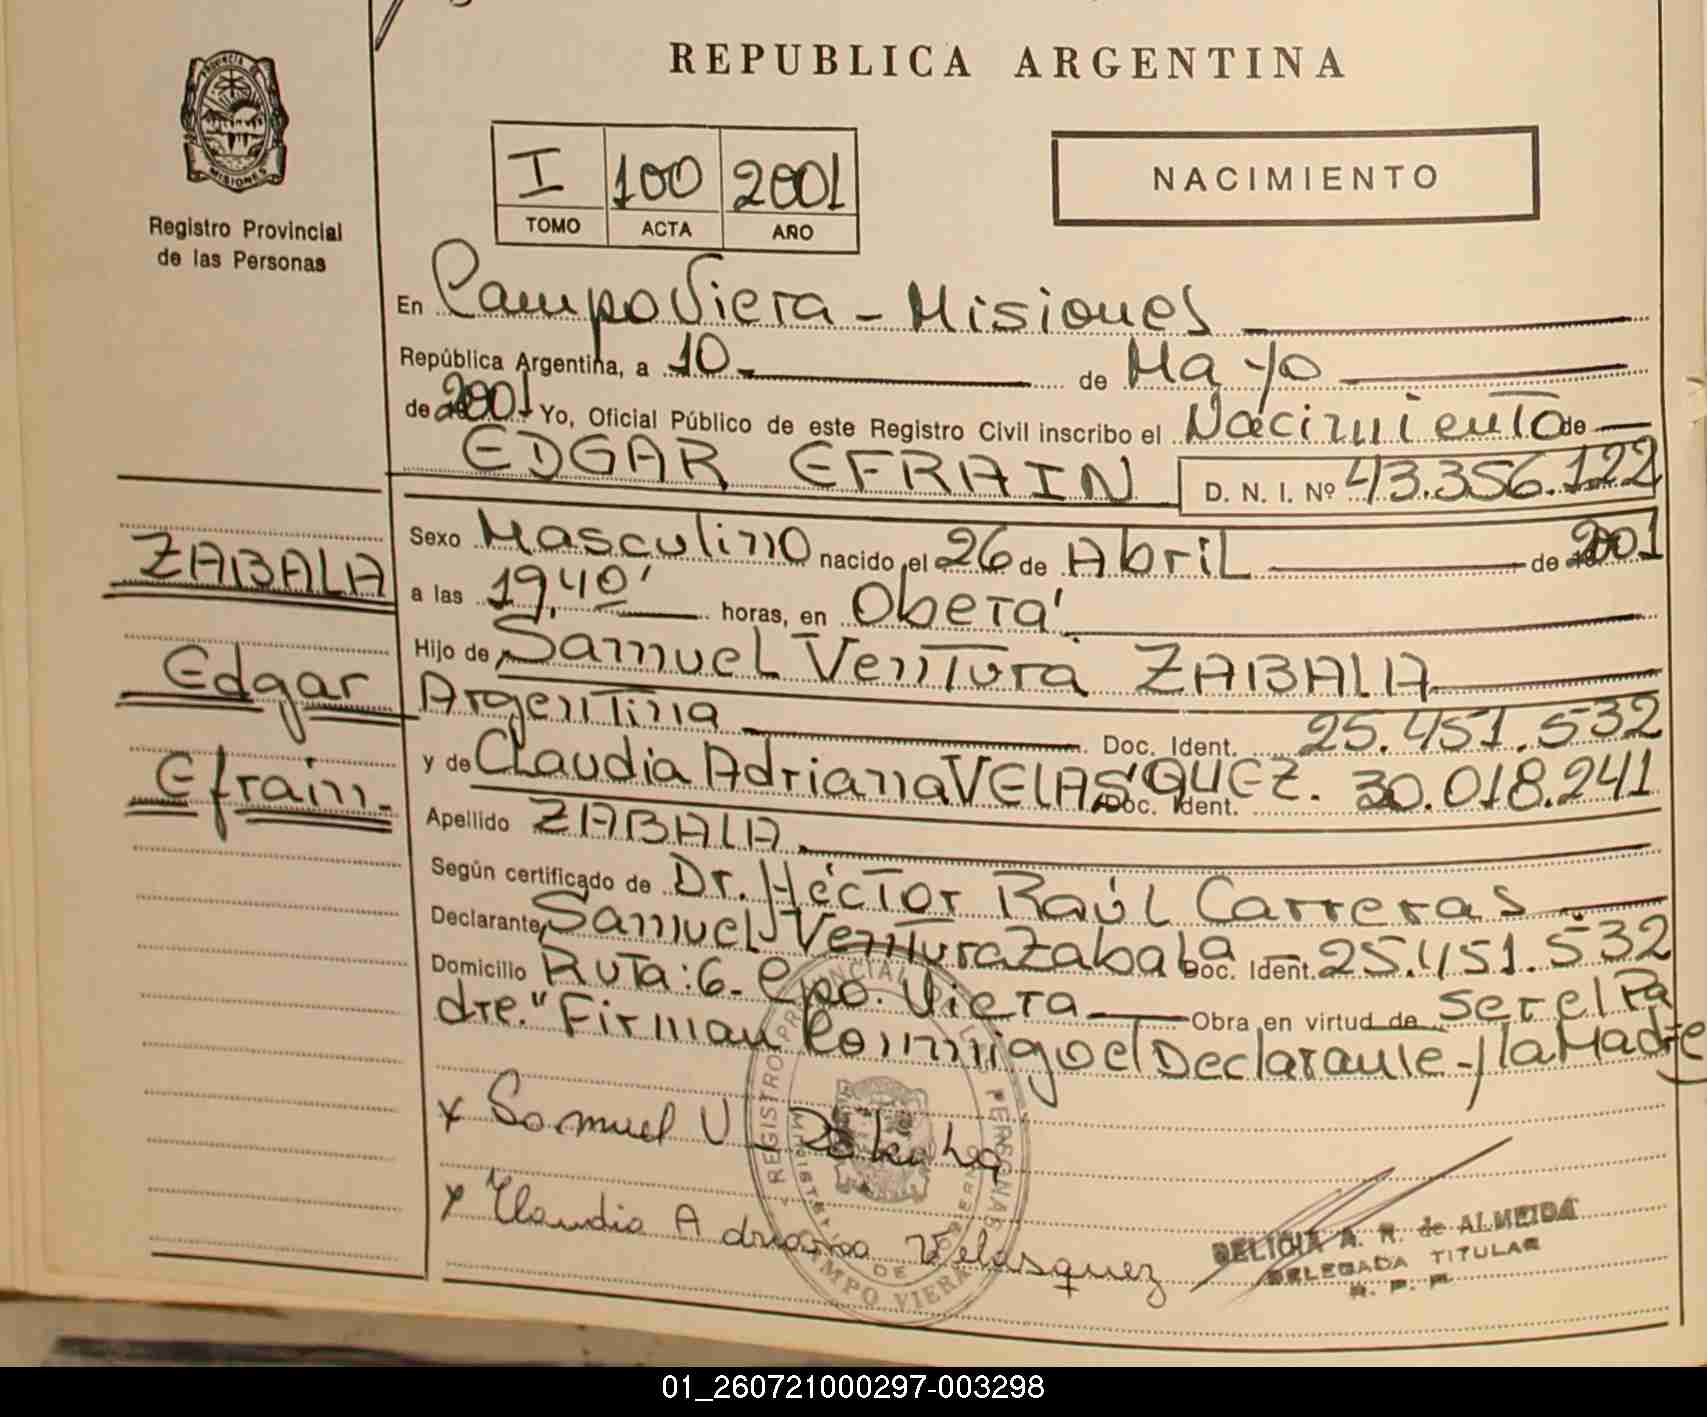 PROVINCIA DE
MISIONES
Registro Provincial
de las Personas
REPUBLICA ARGENTINA
I 100 2001
TOMO ACTA AÑO
NACIMIENTO
En Campo Viera - Misiones
República Argentina, a 10 de Mayo
de 2001 Yo, Oficial Público de este Registro Civil inscribo el Nacimiento de
EDGAR EFRAIN D. N. I. Nº 43.356.122
ZABALA
Edgar
Efrain.
Sexo Masculino nacido el 26 de Abril de 2001
a las 19,40' horas, en Oberá
Hijo de Samuel Ventura ZABALA
Argentina Doc. Ident. 25.451.532
y de Claudia Adriana VELASQUEZ. Doc. Ident. 30.018.241
Apellido ZABALA
Según certificado de Dr. Héctor Raúl Carreras
Declarante Samuel Ventura Zabala Doc. Ident. 25.451.532
Domicilio Ruta: 6 - Cpo. Viera Obra en virtud de ser el Pa
dre." Firman Conmigo el Declarante y la Madre
x Samuel V
x Claudia Adriana Velasquez
REGISTRO PROVINCIAL DE LAS PERSONAS
CAMPO VIERA
DELICIA A. R. de ALMEIDA
DELEGADA TITULAR
R. P. P.
01_260721000297-003298